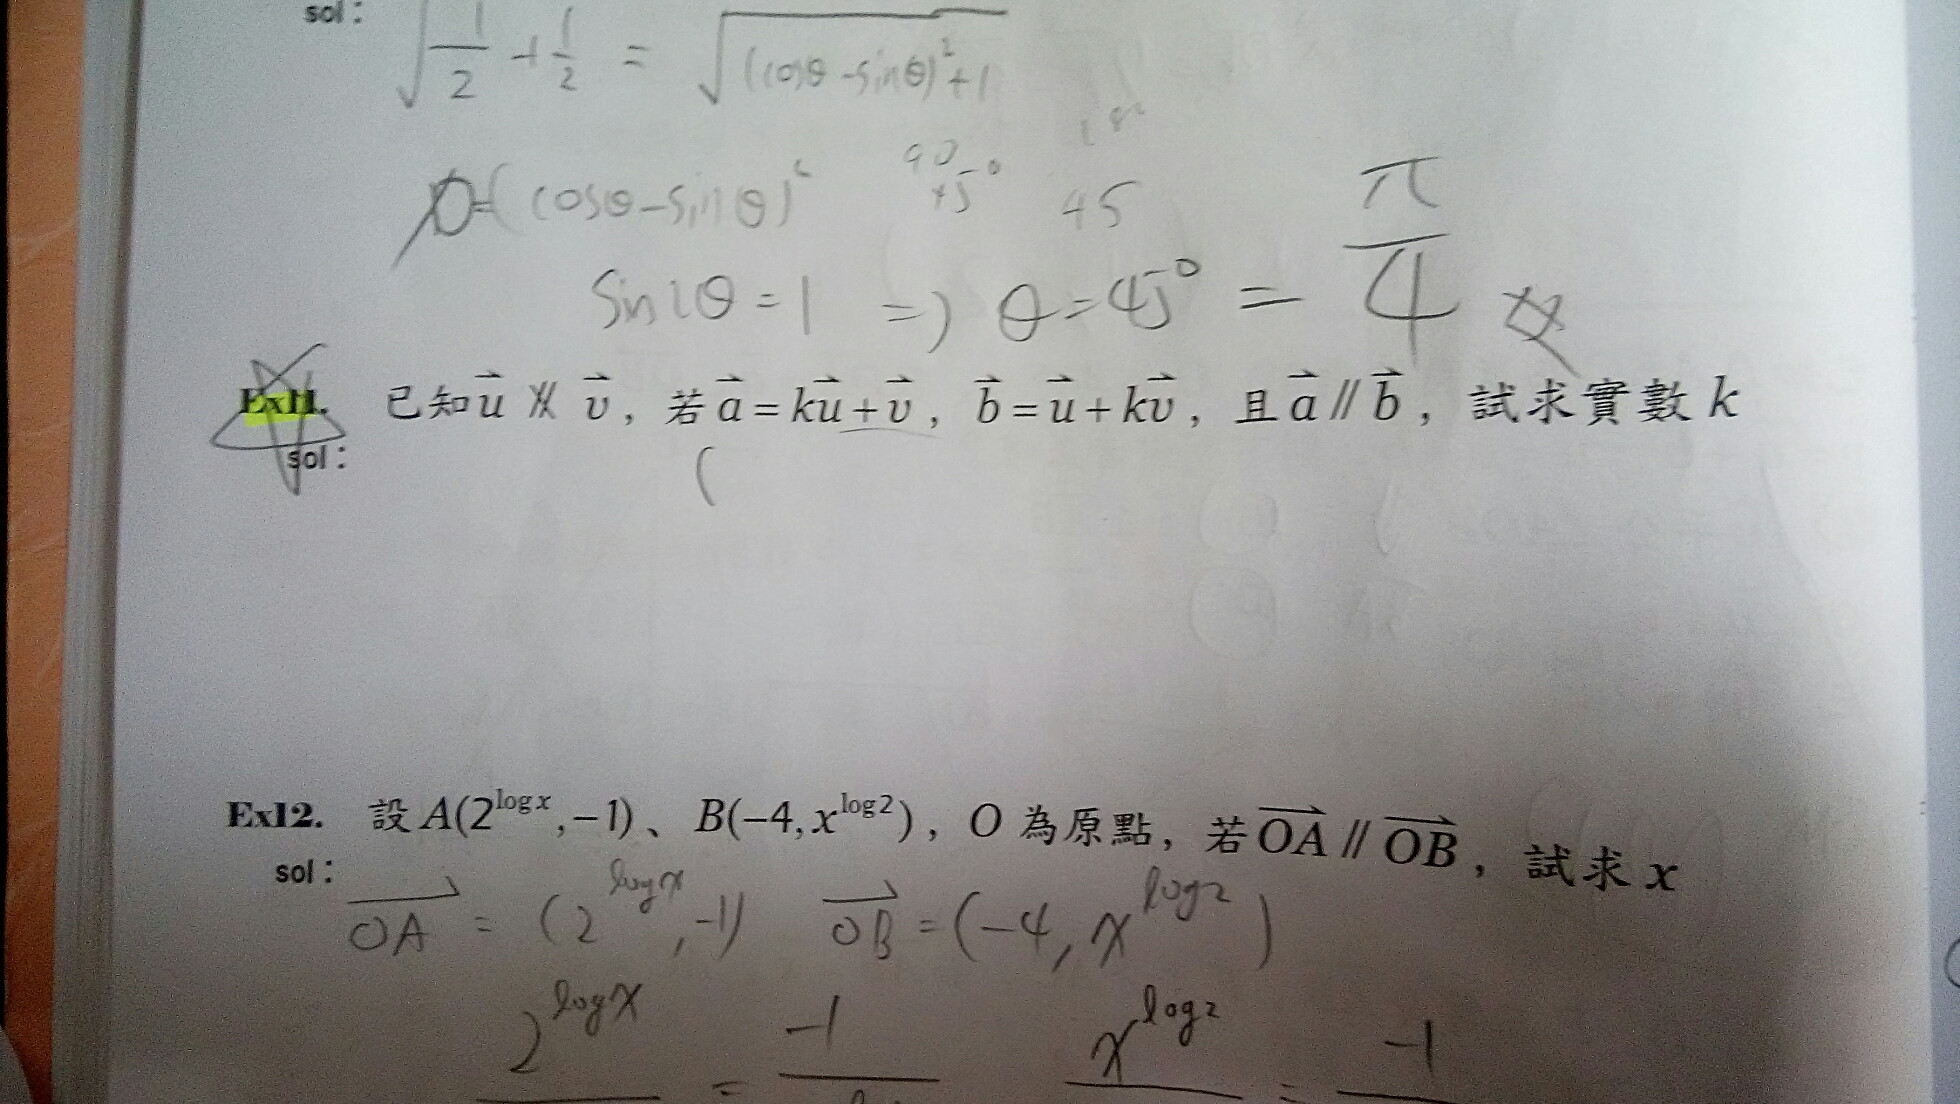 sol：
√(1/2 + 1/2) = √((cosθ - sinθ)² + 1)
90
45°
0 = (cosθ - sinθ)² 45
sin2θ = 1 => θ = 45° = π/4
Ex11. 已知 u⃗ ∦ v⃗，若 a⃗ = ku⃗ + v⃗，b⃗ = u⃗ + kv⃗，且 a⃗ // b⃗，試求實數 k
sol：
(
Ex12. 設 A(2^{log x}, -1)、B(-4, x^{log 2})，O 為原點，若 OA⃗ // OB⃗，試求 x
sol：
OA⃗ = (2^{log x}, -1) OB⃗ = (-4, x^{log 2})
2^{log x} = -1 x^{log 2} = -1